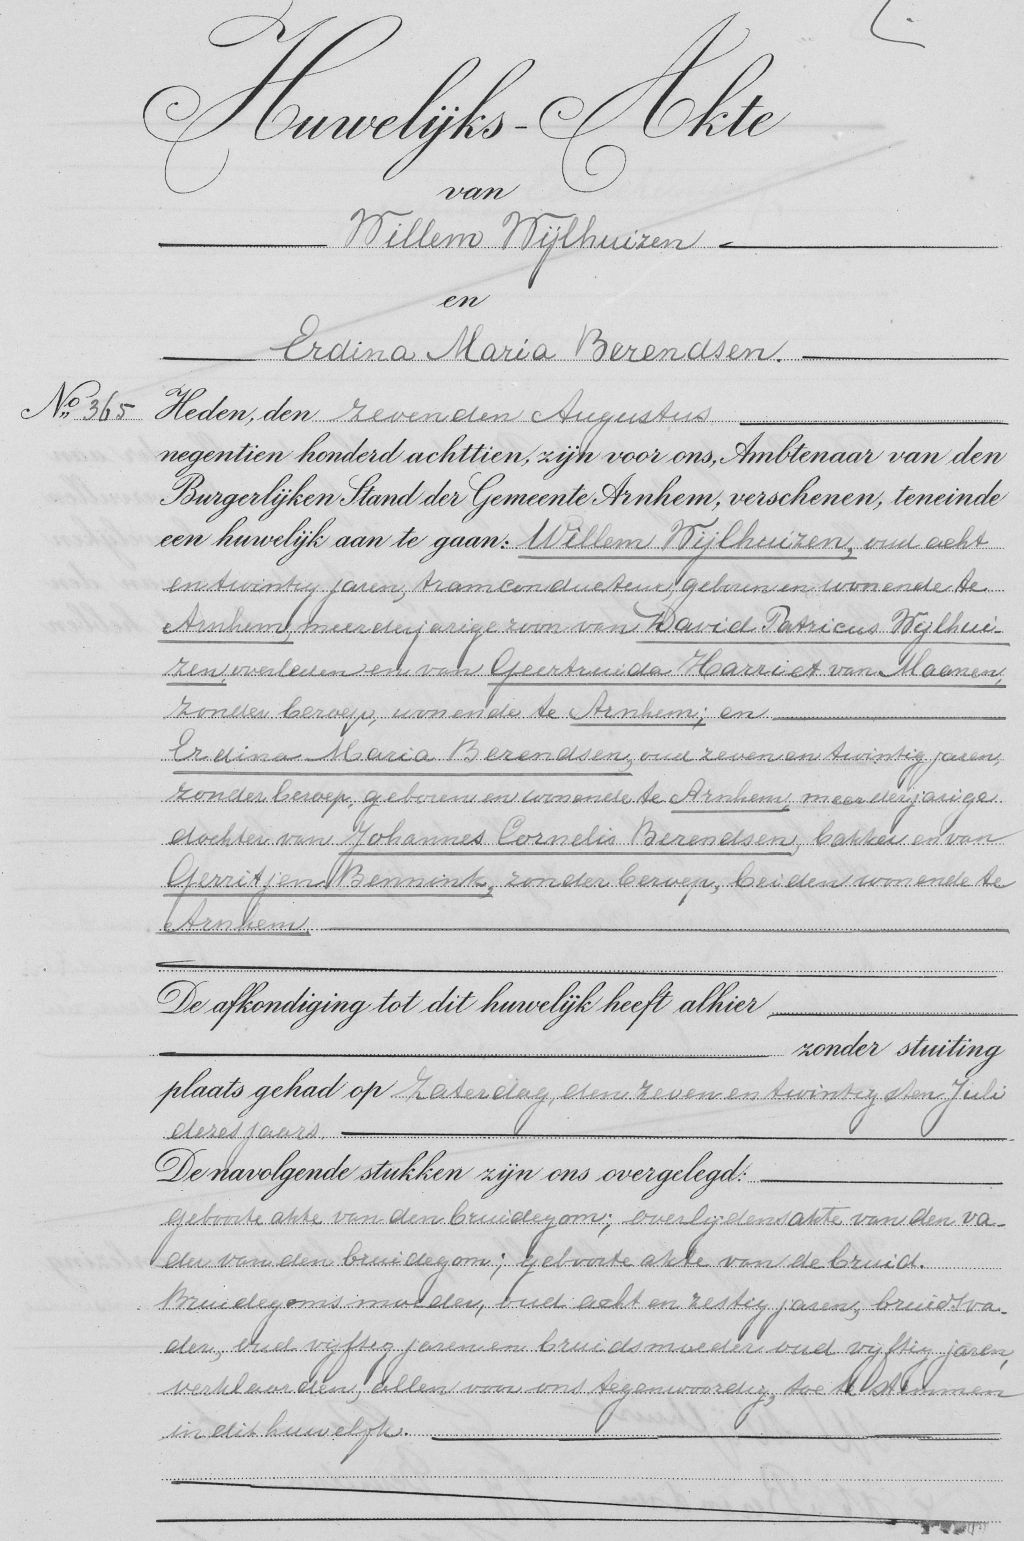 Huwelijks-Akte
van
Willem Wijlhuizen
en
Erdina Maria Berendsen.
No. 365 Heden, den zevenden Augustus
negentien honderd achttien, zijn voor ons, Ambtenaar van den
Burgerlijken Stand der Gemeente Arnhem, verschenen, teneinde
een huwelijk aan te gaan: Willem Wijlhuizen, oud acht
en twintig jaren, tramconducteur, geboren en wonende te
Arnhem, meerderjarige zoon van David Patricus Wijlhui-
zen, overleden en van Geertruida Harriet van Maanen,
zonder beroep, wonende te Arnhem; en
Erdina Maria Berendsen, oud zeven en twintig jaren,
zonder beroep, geboren en wonende te Arnhem, meerderjarige
dochter van Johannes Cornelis Berendsen, bakker en van
Gerritjen Bennink, zonder beroep, beiden wonende te
Arnhem.
De afkondiging tot dit huwelijk heeft alhier
zonder stuiting
plaats gehad op Zaterdag, den zeven en twintigsten Juli
dezes jaars.
De navolgende stukken zijn ons overgelegd:
geboorte akte van den bruidegom; overlijdensakte van den va-
der van den bruidegom; geboorte akte van de bruid.
Bruidegoms moeder, oud acht en zestig jaren, bruidsva-
der, oud vijftig jaren en bruidsmoeder oud vijftig jaren,
verklaarden, allen voor ons tegenwoordig, toe te stemmen
in dit huwelijk.